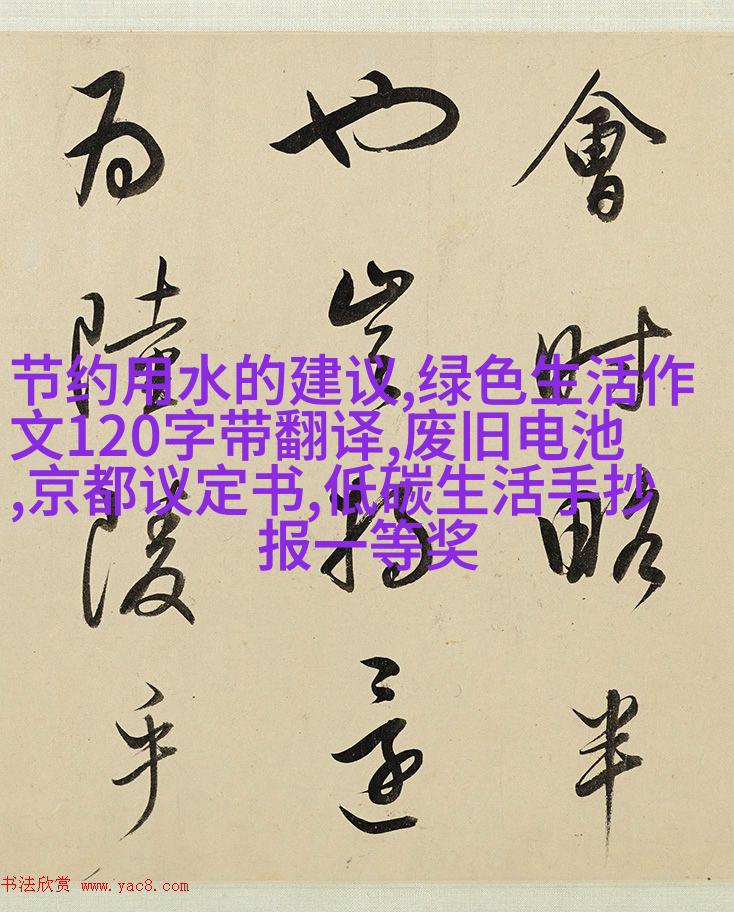 會時略半
也豈特還
為陵乎
节约用水的建议,绿色生活作
文120字带翻译,废旧电池
,京都议定书,低碳生活手抄
报一等奖
书法欣赏 www.yac8.com